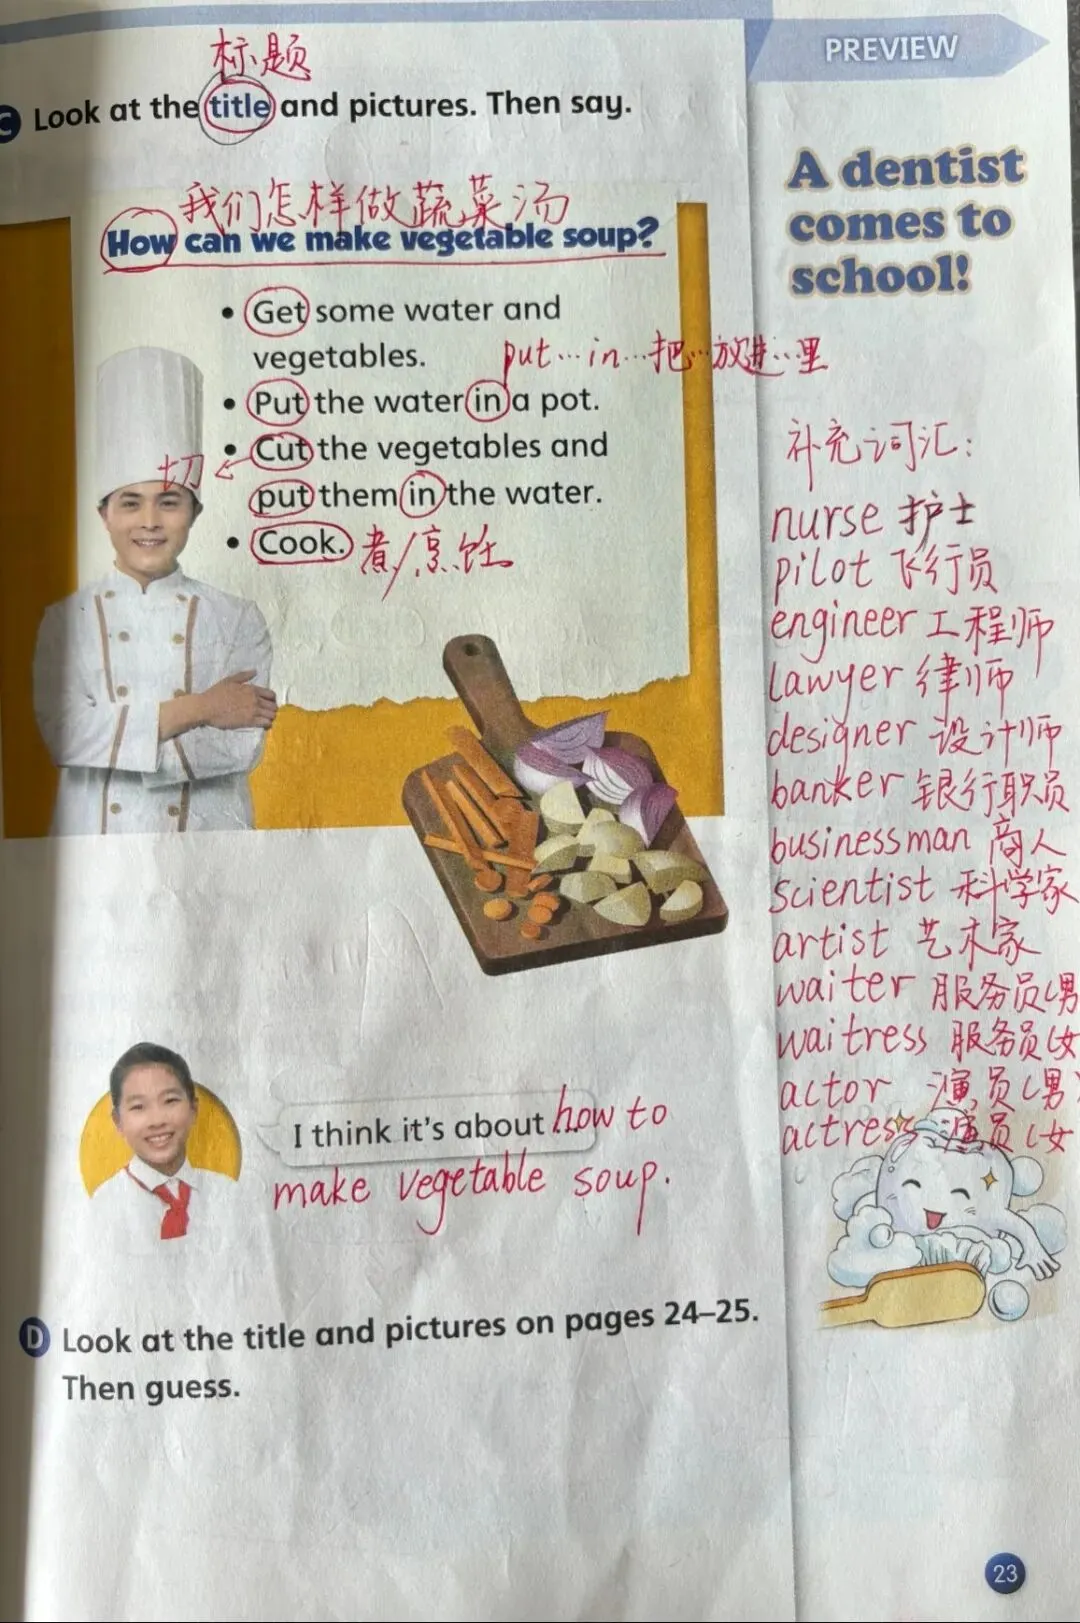 标题
C Look at the title and pictures. Then say.
我们怎样做蔬菜汤
How can we make vegetable soup?
• Get some water and
vegetables.
put…in…把…放进…里
• Put the water in a pot.
• Cut the vegetables and
切
put them in the water.
• Cook. 煮/烹饪
I think it's about ... how to
make vegetable soup.
D Look at the title and pictures on pages 24–25.
Then guess.
PREVIEW
A dentist
comes to
school!
补充词汇:
nurse 护士
pilot 飞行员
engineer 工程师
lawyer 律师
designer 设计师
banker 银行职员
businessman 商人
scientist 科学家
artist 艺术家
waiter 服务员(男
waitress 服务员(女
actor 演员(男)
actress 演员(女
23